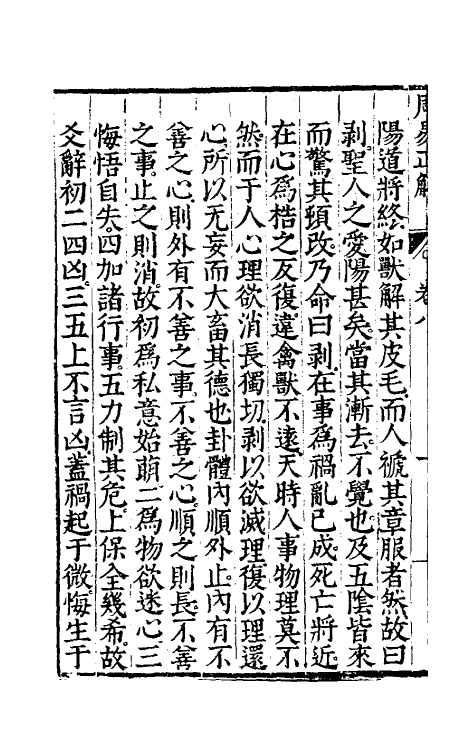 周易正解
卷八
陽道將終如獸解其皮毛而人褫其章服者然故曰
剥聖人之愛陽甚矣當其漸去不覺也及五陰皆來
而驚其頓改乃命曰剥在事為禍亂已成死亡將近
在心為梏之反復違禽獸不遠天時人事物理莫不
然而于人心理欲消長獨切剥以欲滅理復以理還
心所以无妄而大畜其德也卦體內順外止內有不
善之心則外有不善之事不善之心順之則長不善
之事止之則消故初為私意始萌二為物欲迷心三
悔悟自失四加諸行事五力制其危上保全幾希故
爻辭初二四凶三五上不言凶蓋禍起于微悔生于